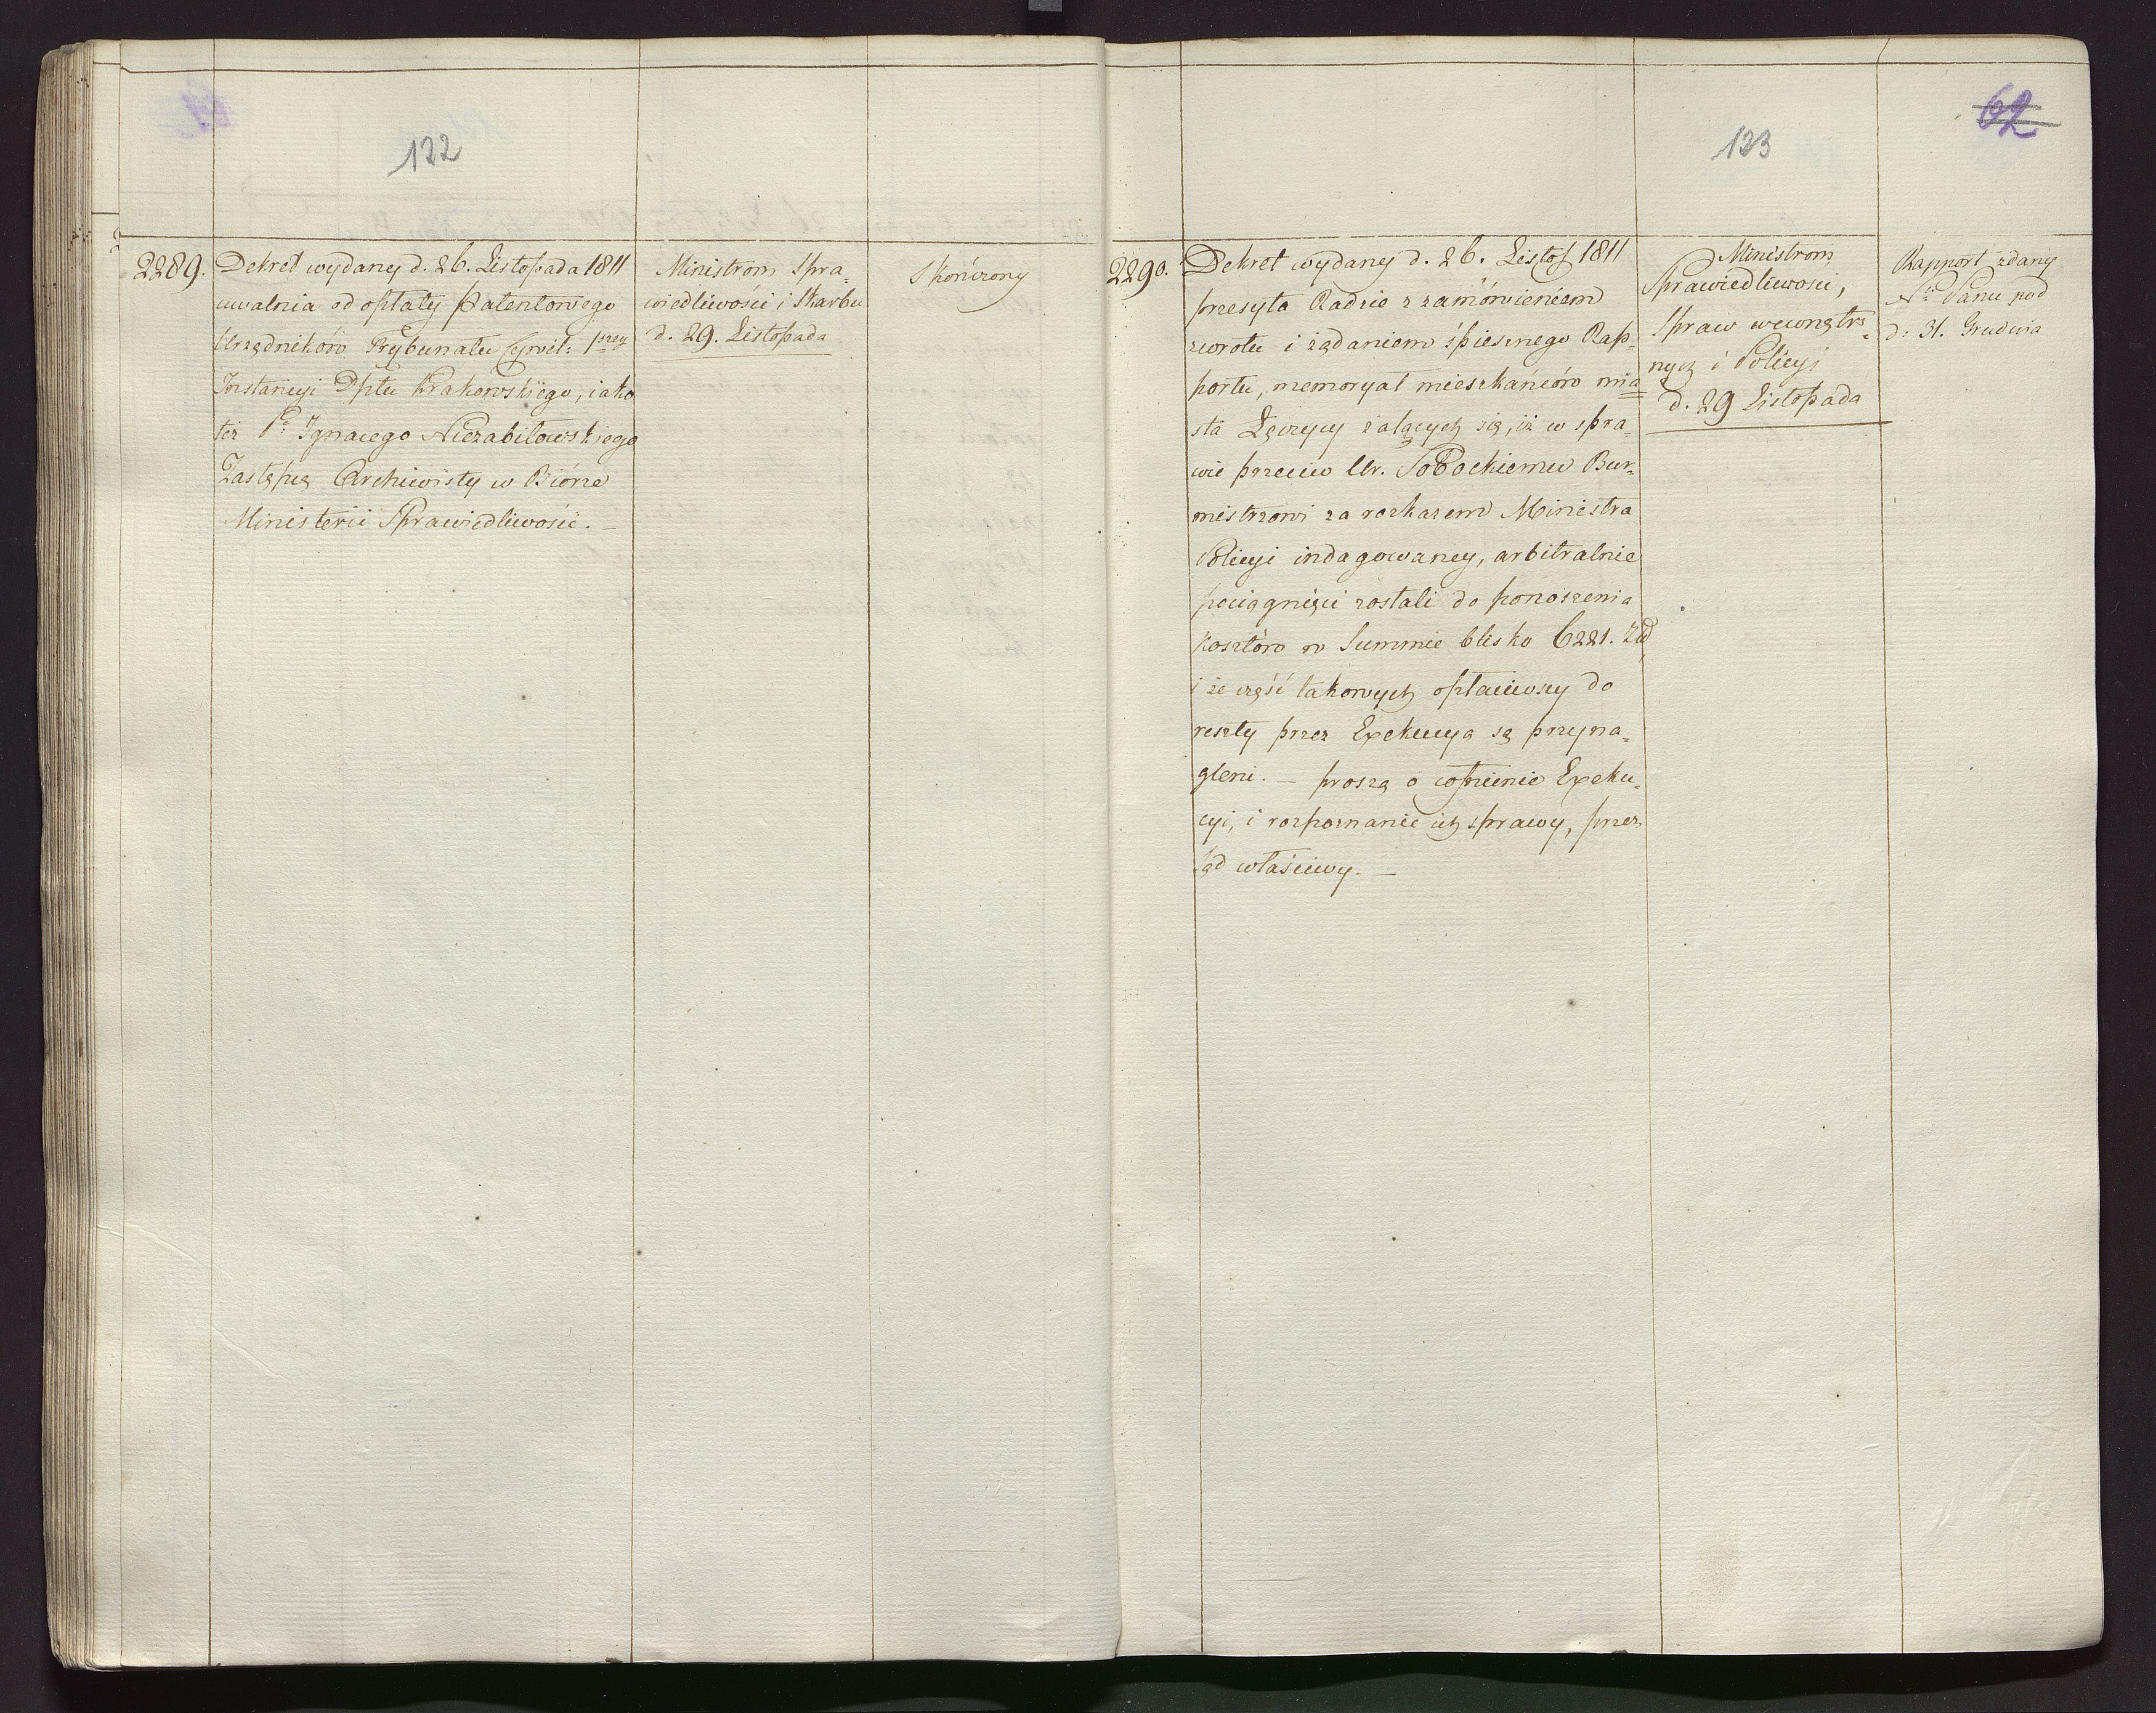 122
2289.
Dekret wydany d. 26. Listopada 1811
uwalnia od opłaty Patentowego
Urzędników Trybunału Cywil: 1szey
Instancyi Dptu Krakowskiego, iako
też Pa Ignacego Niezabitowskiego
Zastępcę Archiwisty w Biórze
Ministerii Sprawiedliwości. —
Ministrom Spra-
wiedliwości i Skarbu
d. 29. Listopada
Skończony
123
62
2290.
Dekret wydany d. 26. Listop 1811
przesyła Radzie z zamówieniem
zwrotu i żądaniem śpiesznego Rap-
portu, memoryał mieszkańców mia=
sta Łęczycy żalących się, iż w spra-
wie przeciw Ur. Sobockiemu Bur-
mistrzowi za rozkazem Ministra
Policyi indagowaney, arbitralnie
pociągnięci zostali do ponoszenia
kosztów w Summie blisko 6221. Złł,
i że część takowych opłaciwszy do
reszty przez Exekucyą są przyna-
gleni. — proszą o cofnienie Exeku-
cyi, i rozpoznanie ich sprawy, przez
Sąd właściwy. —
Ministrom
Sprawiedliwosci,
Spraw wewnętrz-
nych i Policyi
d. 29 Listopada
Rapport zdany
Nu Panu pod
d. 31. Grudnia